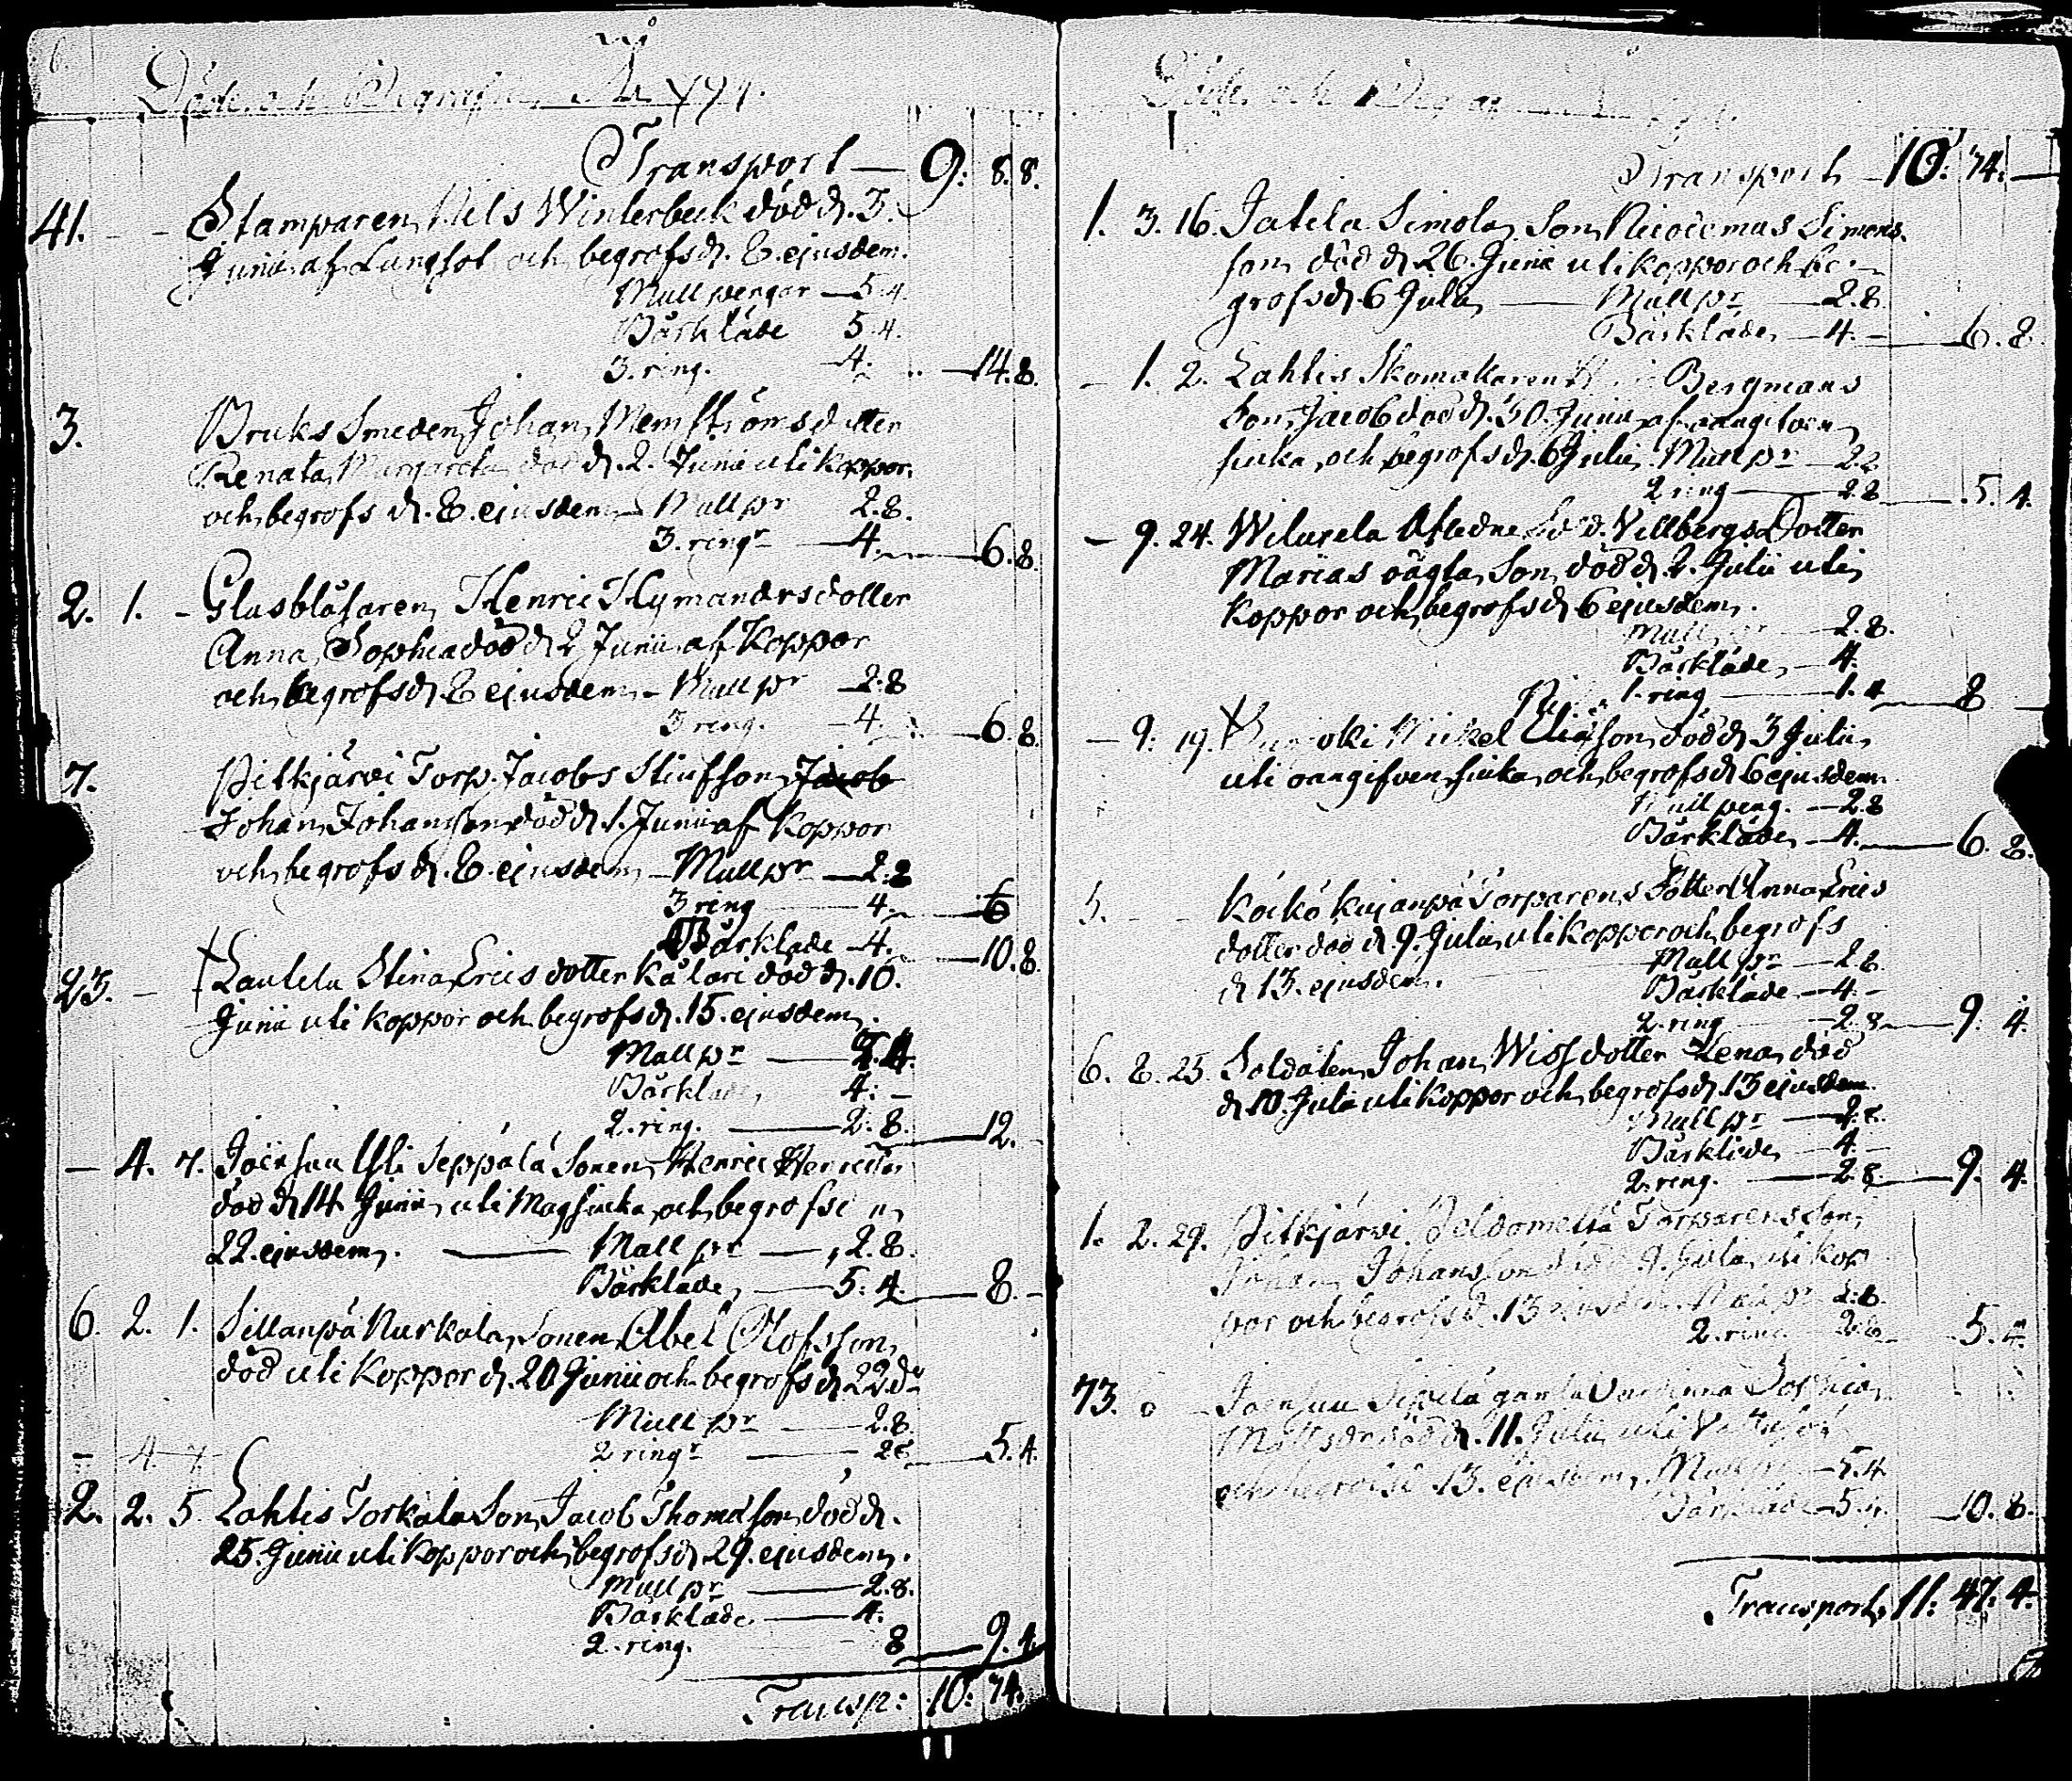 Döde och Begrafne År 1794.
Transport — 9: 8. 8.
41. - - Stamparen Nils Winterbeck död d. 3.
Junii af Lungsot och begrofs d. 8. ejusdem.
Mullpengar — 5.4.
Bårkläde 5.4.
3. ring. — 4. — 14. 8.
3. Bruks Smeden Johan Memströms dotter
Renata Margareta död d. 2. Junii uti koppor
och begrofs d. 8. ejusdem — Mull pr 2.8.
3. ringr — 4. — 6. 8.
2. 1. - Glasblåsaren Henric Hymanders dotter
Anna Sophia död d 2 Junii af Koppor
och begrofs d. 8 ejusdem. - Mull pr 2.8
3 ring. — 4. — 6. 8.
7. Pitkjärvi Torp. Jacobs Stiufson Jacob
Johan Johansson död d. 1. Junii af Koppor
och begrofs d. 8. ejusdem — Mull pr — 2.8
3 ring — 4. — 6
Bårkläde — 4. — 10. 8.
23. - † Lautela Stina Erics dotter Kälari död d. 10.
Junii uti koppor och begrofs d. 15. ejusdem.
Mull pr — 5.4.
Bårkläde 4: -
2. ring. — 2. 8. — 12. -
- 4. 7. Joensuu Yli Seppälä Sonen Henric Henricss.
död d 14 Junii uti Magsiuka och begrofs
22. ejusdem. — Mull pr — 2.8.
Bårkläde — 5. 4. — 8. -
6. 2. 1. Sillanpä Nurkala Sonen Abel Olofsson
död uti Koppor d. 20 Junii och begrofs d 22 do
Mull pr — 2.8.
2 ringr — 2.8. — 5. 4.
- 4. 7.
2. 2. 5. Lahtis Torkala Son Jacob Thomasson död d.
25. Junii uti Koppor och begrofs d. 29. ejusdem.
Mull pr — 2.8.
Bårkläde — 4.
2. ring. 8 — 9. 4.
Transp: 10: 74.
Döde och
Transport — 10: 74. —
1. 3. 16. Jatila Simola Son Nicodemus Simons
son död d 26. Junii uti koppor och be-
grofs d. 6 Julii — Mull pr — 2.8.
Bårkläde — 4. - — 6. 8.
- 1. 2. Lahtis Skomakaren Bergmans
Son Jacob död d. 30. Junii af oangifven
siuka och begrofs d. 6 Julii. Mull pr — 2.8
2 ring — 2.8 — 5. 4.
- 9. 24. Wiluxela Afledne Sold. Villbergs Dotter
Marias oägta Son död d. 2. Julii uti
Koppor och begrofs d 6 ejusdem.
Mull pr — 2.8.
Bårkläde — 4.
1. ring — 1. 4 — 8
- 9. 19. † Mickel Eliæson död d 3 Julii
uti oangifven siuka och begrofs d 6 ejusdem.
Mull peng. — 2.8
Bårkläde — 4. — 6. 8.
5. - - Koiko kujanpä Torparens Dotter Anna Erics
dotter död d 9. Julii uti Koppor och begrofs
d 13. ejusdem. — Mull pr — 2.8.
Bårkläde — 4. -
2. ring — 2.8 — 9. 4.
6. 8. 25. Soldaten Johan Wiss dotter Lena död
d 10. Julii uti Koppor och begrofs d 13 ejusdem.
Mull pr — 2.8.
Bårkläde — 4. -
2. ring. — 2.8. — 9. 4.
1. 2. 29. Pitkjärvi Torparens Son
Johan Johansson död d 9. Julii uti kop
por och begrofs d. 13 ejusdem. Mull pr 2.8.
2. ring 2.8 — 5. 4.
73. Joensuu Sipilä gamla Anna Sophia
Mattsdr död d. 11. Julii uti
och begrofs d. 13. ejusdem. Mull pr — 5.4
Bårkläde — 5.4. — 10. 8.
Transport: 11: 47. 4.